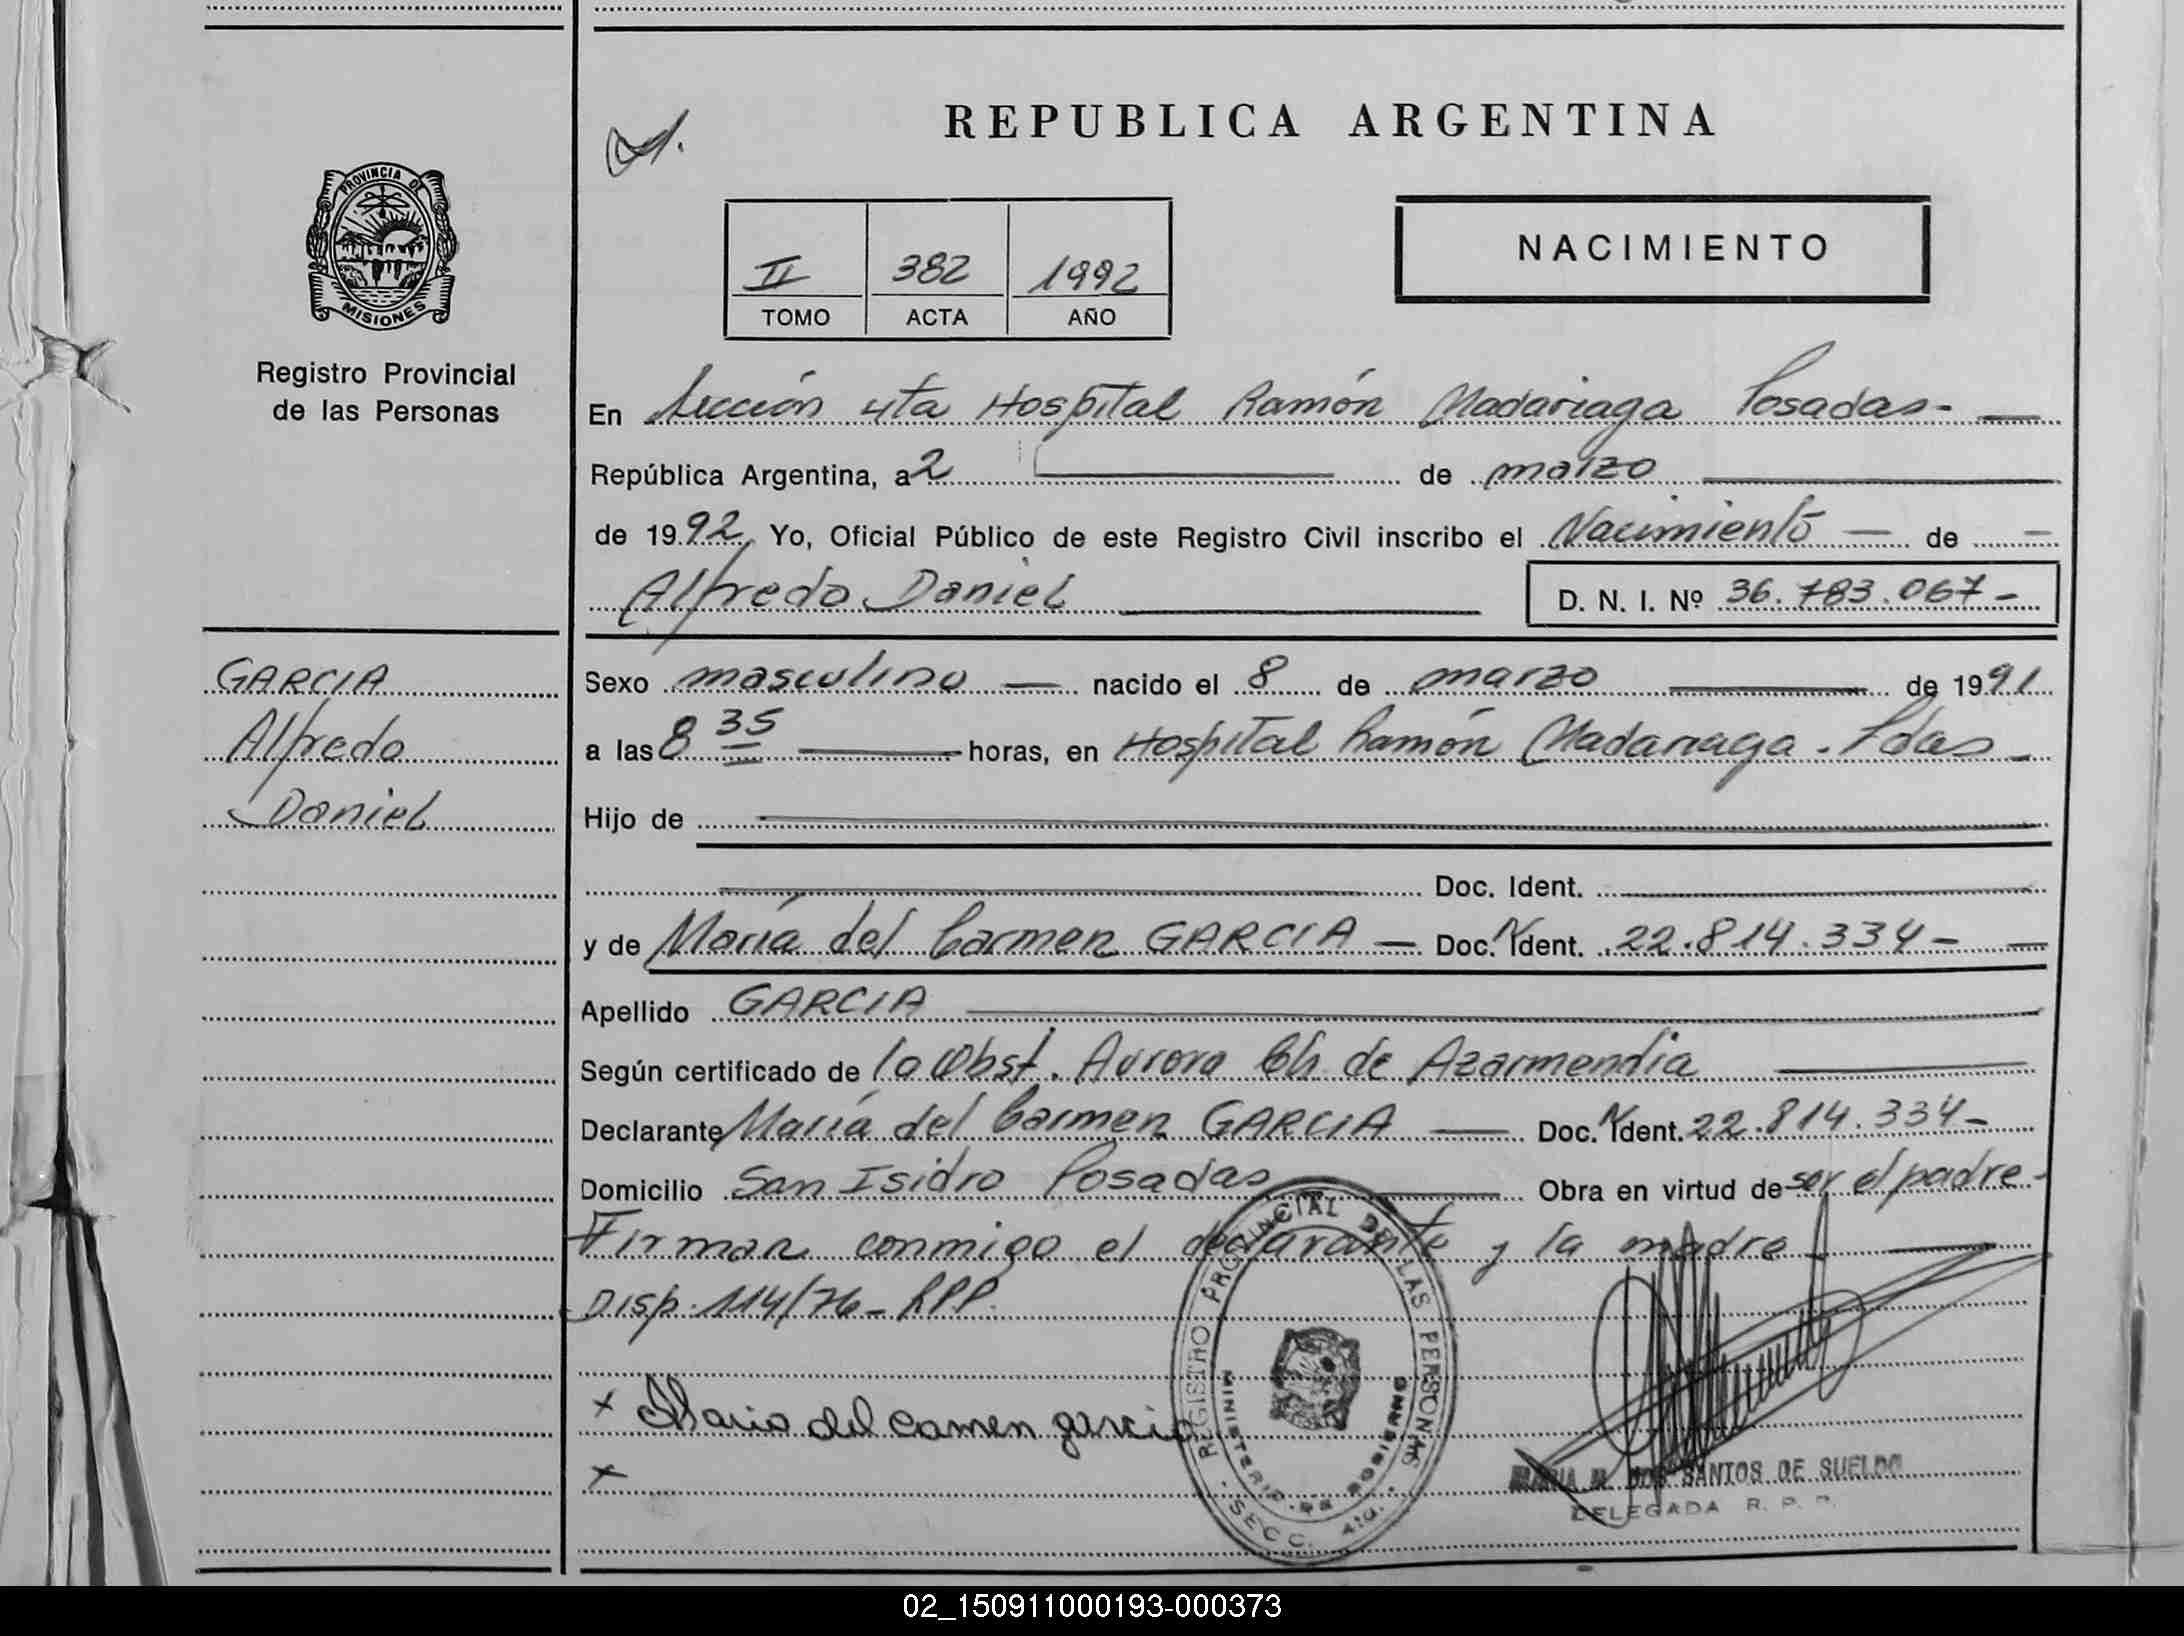 REPUBLICA ARGENTINA
PROVINCIA DE
MISIONES
Registro Provincial
de las Personas
II 382 1992
TOMO ACTA AÑO
NACIMIENTO
En Sección 4ta Hospital Ramón Madariaga Posadas-
República Argentina, a 2 de marzo
de 1992 Yo, Oficial Público de este Registro Civil inscribo el Nacimiento de
Alfredo Daniel D. N. I. Nº 36.783.067-
GARCIA
Alfredo
Daniel
Sexo masculino nacido el 8 de marzo de 1991
a las 8 35 horas, en Hospital Ramón Madariaga. Pdas
Hijo de
Doc. Ident.
y de María del Carmen GARCIA Doc. Ident. 22.814.334-
Apellido GARCIA
Según certificado de la Obst. Aurora Ch de Azarmendia
Declarante María del Carmen GARCIA Doc. Ident. 22.814.334-
Domicilio San Isidro Posadas Obra en virtud de ser el padre-
Firman conmigo el declarante y la madre
Disp. 114/76- RPP.
x Maria del camen garcia
x
REGISTRO PROVINCIAL DE LAS PERSONAS
MINISTERIO DE GOBIERNO
SECC. 4ta.
MARIA M. DOS SANTOS DE SUELDO
DELEGADA R. P. P.
02_150911000193-000373